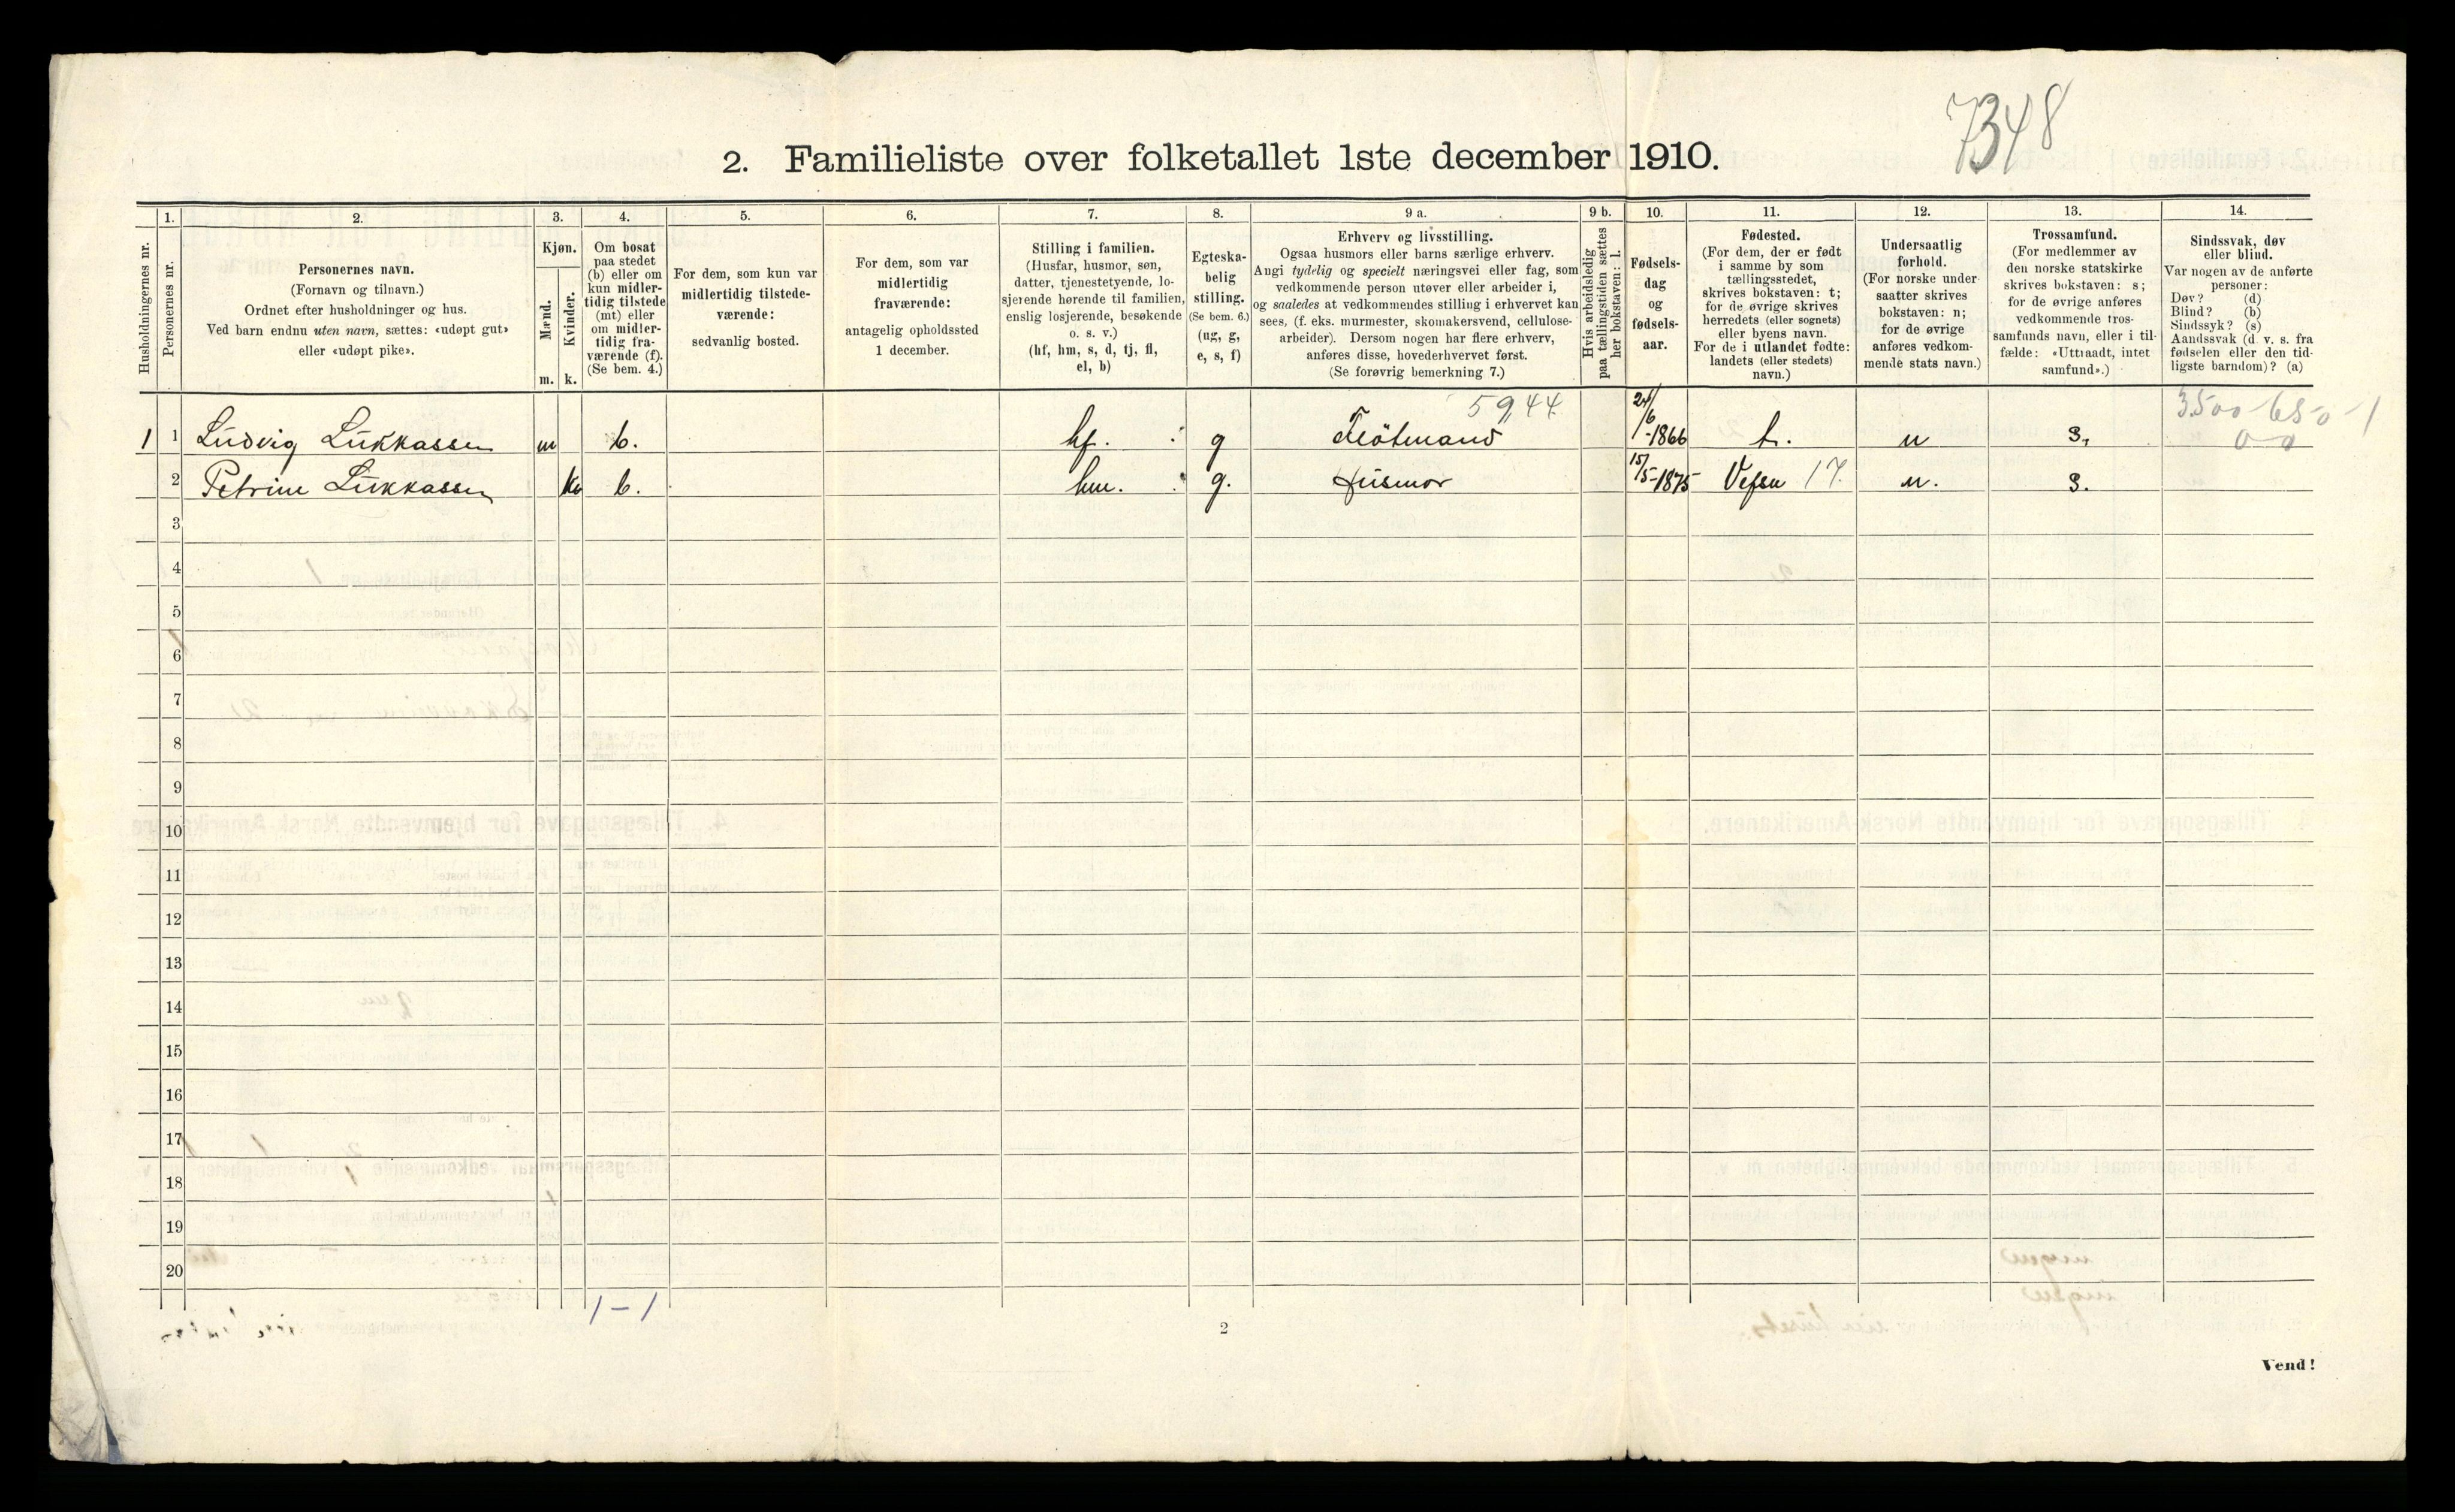 7348
2. Familieliste over folketallet 1ste december 1910.
Husholdningernes nr.
1.
Personernes nr.
2.
Personernes navn.
(Fornavn og tilnavn.)
Ordnet efter husholdninger og hus.
Ved barn endnu uten navn, sættes: «udøpt gut»
eller «udøpt pike».
3.
Kjøn.
Mænd.
Kvinder.
m.
k.
4.
Om bosat
paa stedet
(b) eller om
kun midler-
tidig tilstede
(mt) eller
om midler-
tidig fra-
værende (f).
(Se bem. 4.)
5.
For dem, som kun var
midlertidig tilstede-
værende:
sedvanlig bosted.
6.
For dem, som var
midlertidig
fraværende:
antagelig opholdssted
1 december.
7.
Stilling i familien.
(Husfar, husmor, søn,
datter, tjenestetyende, lo-
sjerende hørende til familien,
enslig losjerende, besøkende
o. s. v.)
(hf, hm, s, d, tj, fl,
el, b)
8.
Egteska-
belig
stilling.
(Se bem. 6.)
(ug, g,
e, s, f)
9 a.
Erhverv og livsstilling.
Ogsaa husmors eller barns særlige erhverv.
Angi tydelig og specielt næringsvei eller fag, som
vedkommende person utøver eller arbeider i,
og saaledes at vedkommendes stilling i erhvervet kan
sees, (f. eks. murmester, skomakersvend, cellulose-
arbeider). Dersom nogen har flere erhverv,
anføres disse, hovederhvervet først.
(Se forøvrig bemerkning 7.)
9 b.
Hvis arbeidsledig
paa tællingstiden sættes
her bokstaven: l.
10.
Fødsels-
dag
og
fødsels-
aar.
11.
Fødested.
(For dem, der er født
i samme by som
tællingsstedet,
skrives bokstaven: t;
for de øvrige skrives
herredets (eller sognets)
eller byens navn.
For de i utlandet fødte:
landets (eller stedets)
navn.)
12.
Undersaatlig
forhold.
(For norske under-
saatter skrives
bokstaven: n;
for de øvrige
anføres vedkom-
mende stats navn.)
13.
Trossamfund.
(For medlemmer av
den norske statskirke
skrives bokstaven: s;
for de øvrige anføres
vedkommende tros-
samfunds navn, eller i til-
fælde: «Uttraadt, intet
samfund».)
14.
Sindssvak, døv
eller blind.
Var nogen av de anførte
personer:
Døv? (d)
Blind? (b)
Sindssyk? (s)
Aandssvak (d. v. s. fra
fødselen eller den tid-
ligste barndom)? (a)
5944 3500-650-1
1 1 Ludvig Lukkassen m b. hf. g Fløtmand 24/6-1866 t. n s. 0-0
2 Petrine Lukkassen k b. hm. g. Husmor 15/5-1875 Vefsn 17. n. s.
3
4
5
6
7
8
9
10
11
12
13
14
15
16
17
18
19
20
1-1
2
Vend!